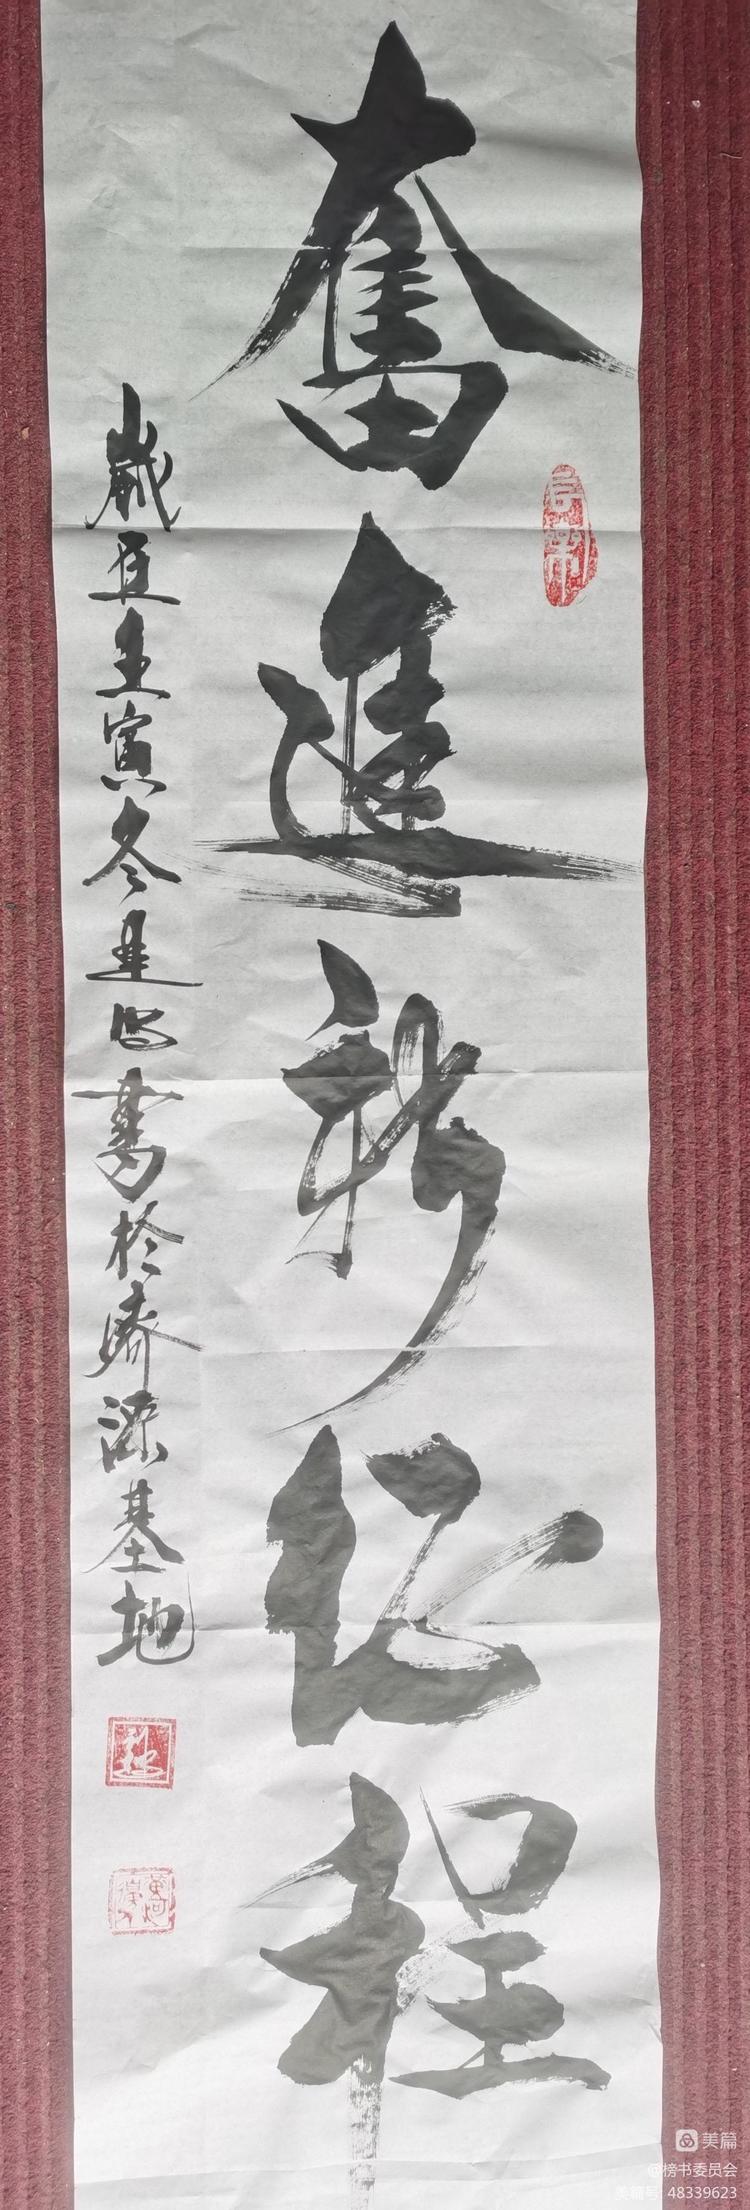 奮進新征程
歲在壬寅冬是以書於濟源基地
美篇
@榜书委员会
美篇号 48339623